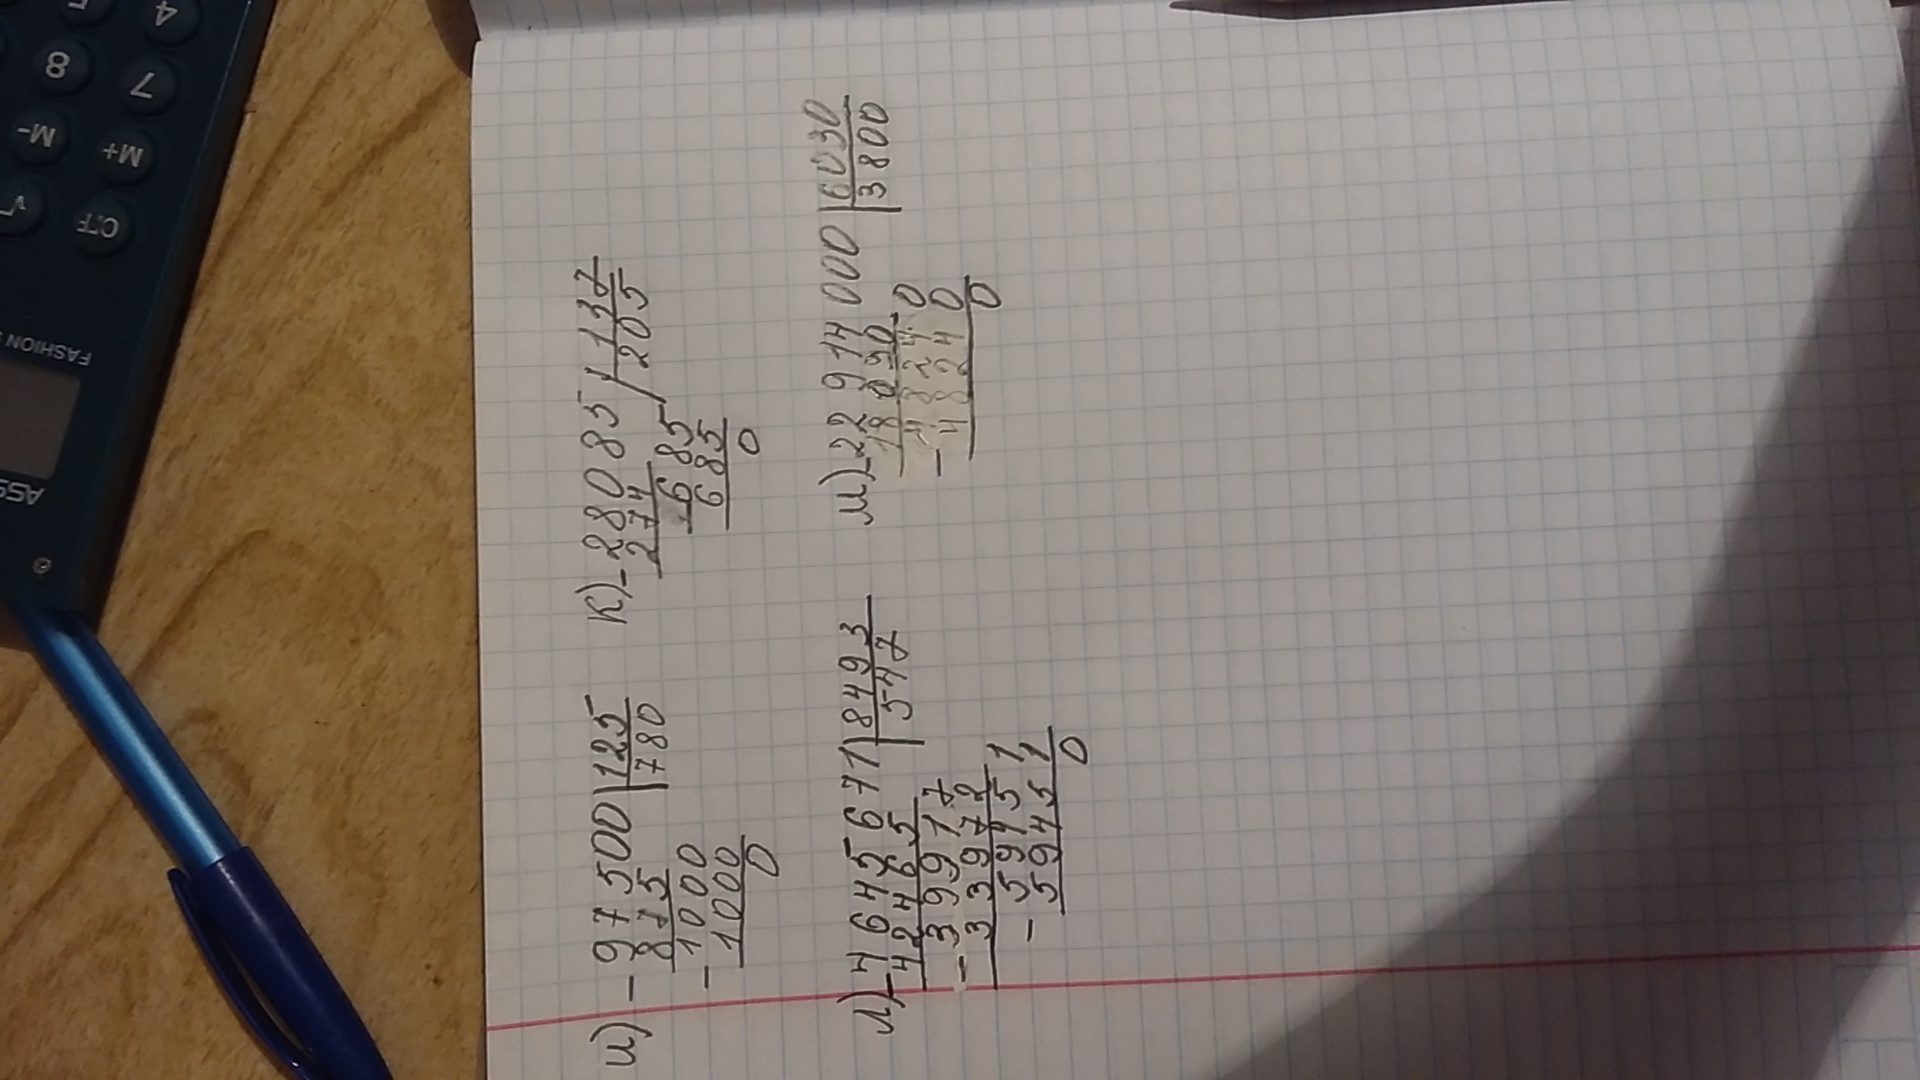 и) - 97500 | 125
875 | 780
- 1000
1000
0
к) - 28085 | 137
274 | 205
- 685
685
0
л) - 4645671 | 8493
42465 | 547
- 39917
33972
- 59451
59451
0
м) - 22914000 | 6030
18090 | 3800
48240
- 48240
0
4
5
7
8
M+
M-
C·F
√
FASHION
ASS